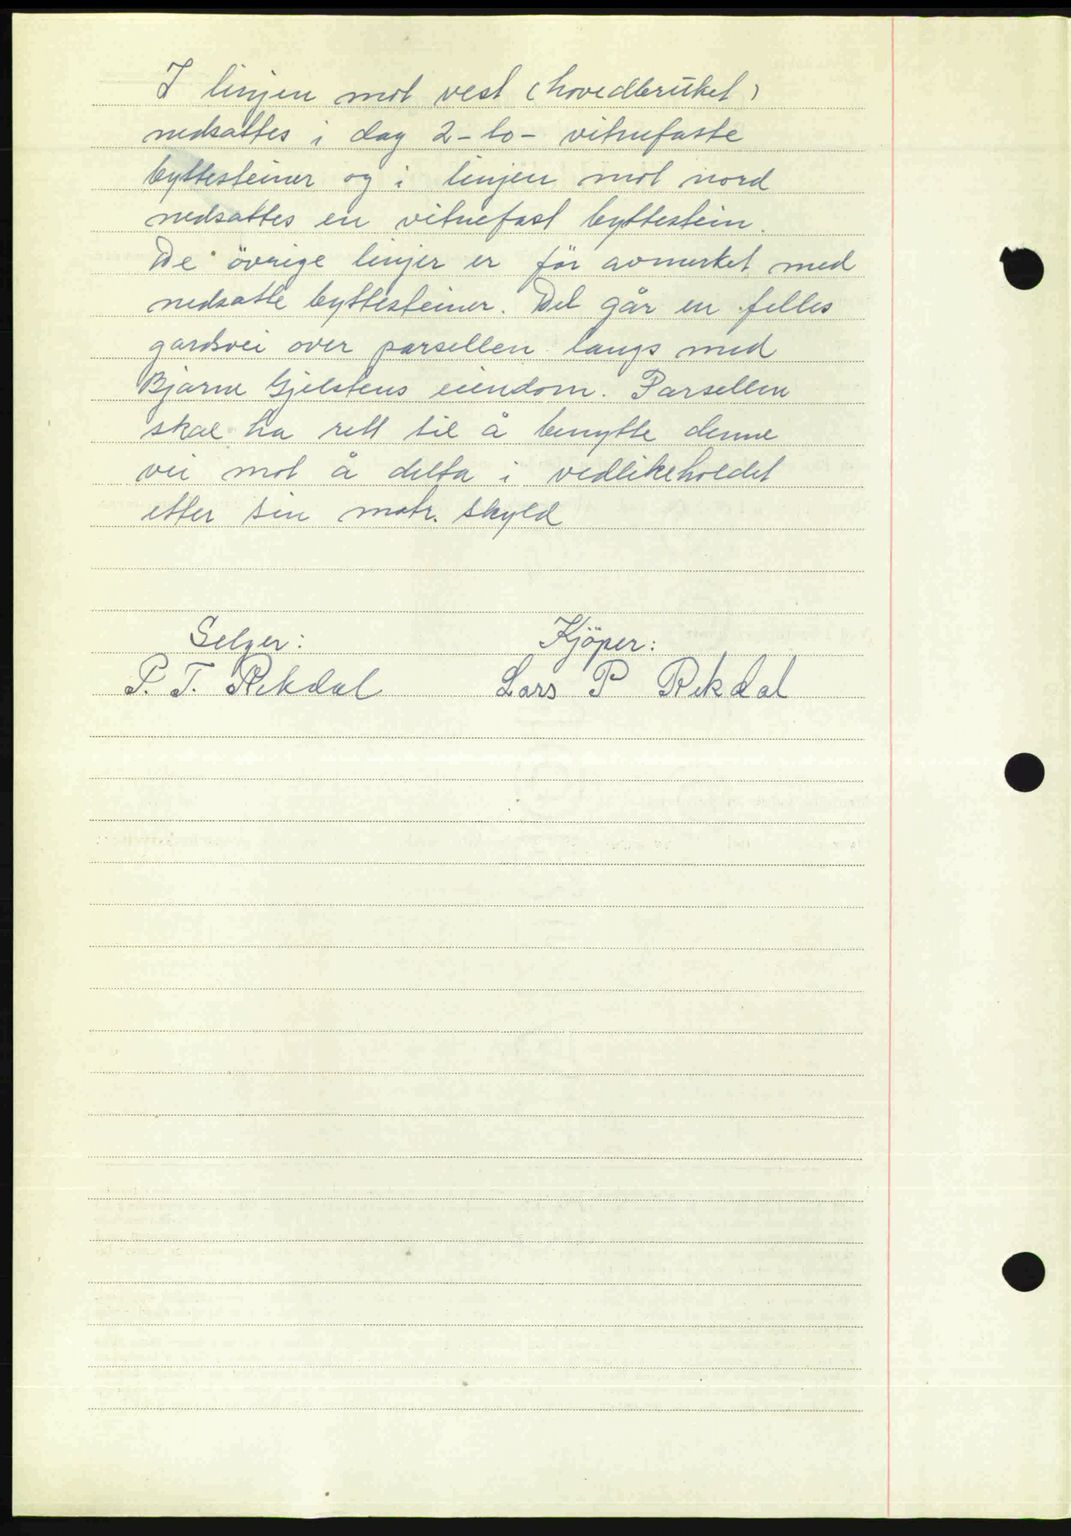 I linjen mot vest (hovedbruket)
nedsattes i dag 2-to- vitnefaste
byttesteiner og i linjen mot nord
nedsattes en vitnefast byttestein.
De övrige linjer er för avmerket med
nedsatte byttesteiner. Det går en felles
gardsvei over parsellen langs med
Bjarne Gjelstens eiendom. Parsellen
skal ha rett til å benytte denne
vei mot å delta i vedlikeholdet
etter sin matr. skyld
Selger: Kjöper:
P. T. Rekdal Lars P Rekdal